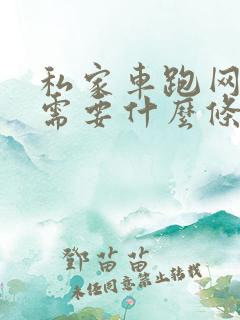 私家車跑网
需要什麼條
鄧苗苗
未经同意禁止转载